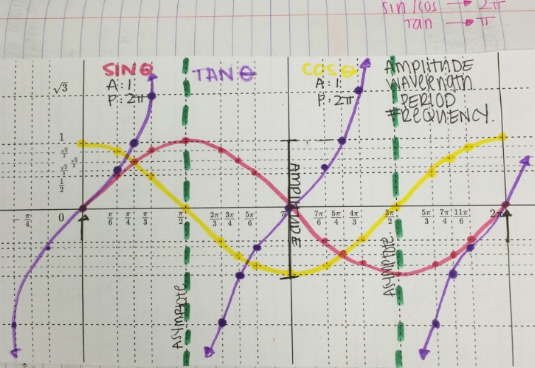 sin/cos → 2π
tan → π
SINθ
A: 1
P: 2π
TAN θ
COSθ
A: 1
P: 2π
AMPLITUDE
WAVELENGTH
PERIOD
FREQUENCY.
√3
1
1/2
0
π/6 π/4 π/3 π/2 2π/3 3π/4 5π/6 π 7π/6 5π/4 4π/3 3π/2 5π/3 7π/4 11π/6 2π
AMPLITUDE
ASYMPTOTE
ASYMPTOTE